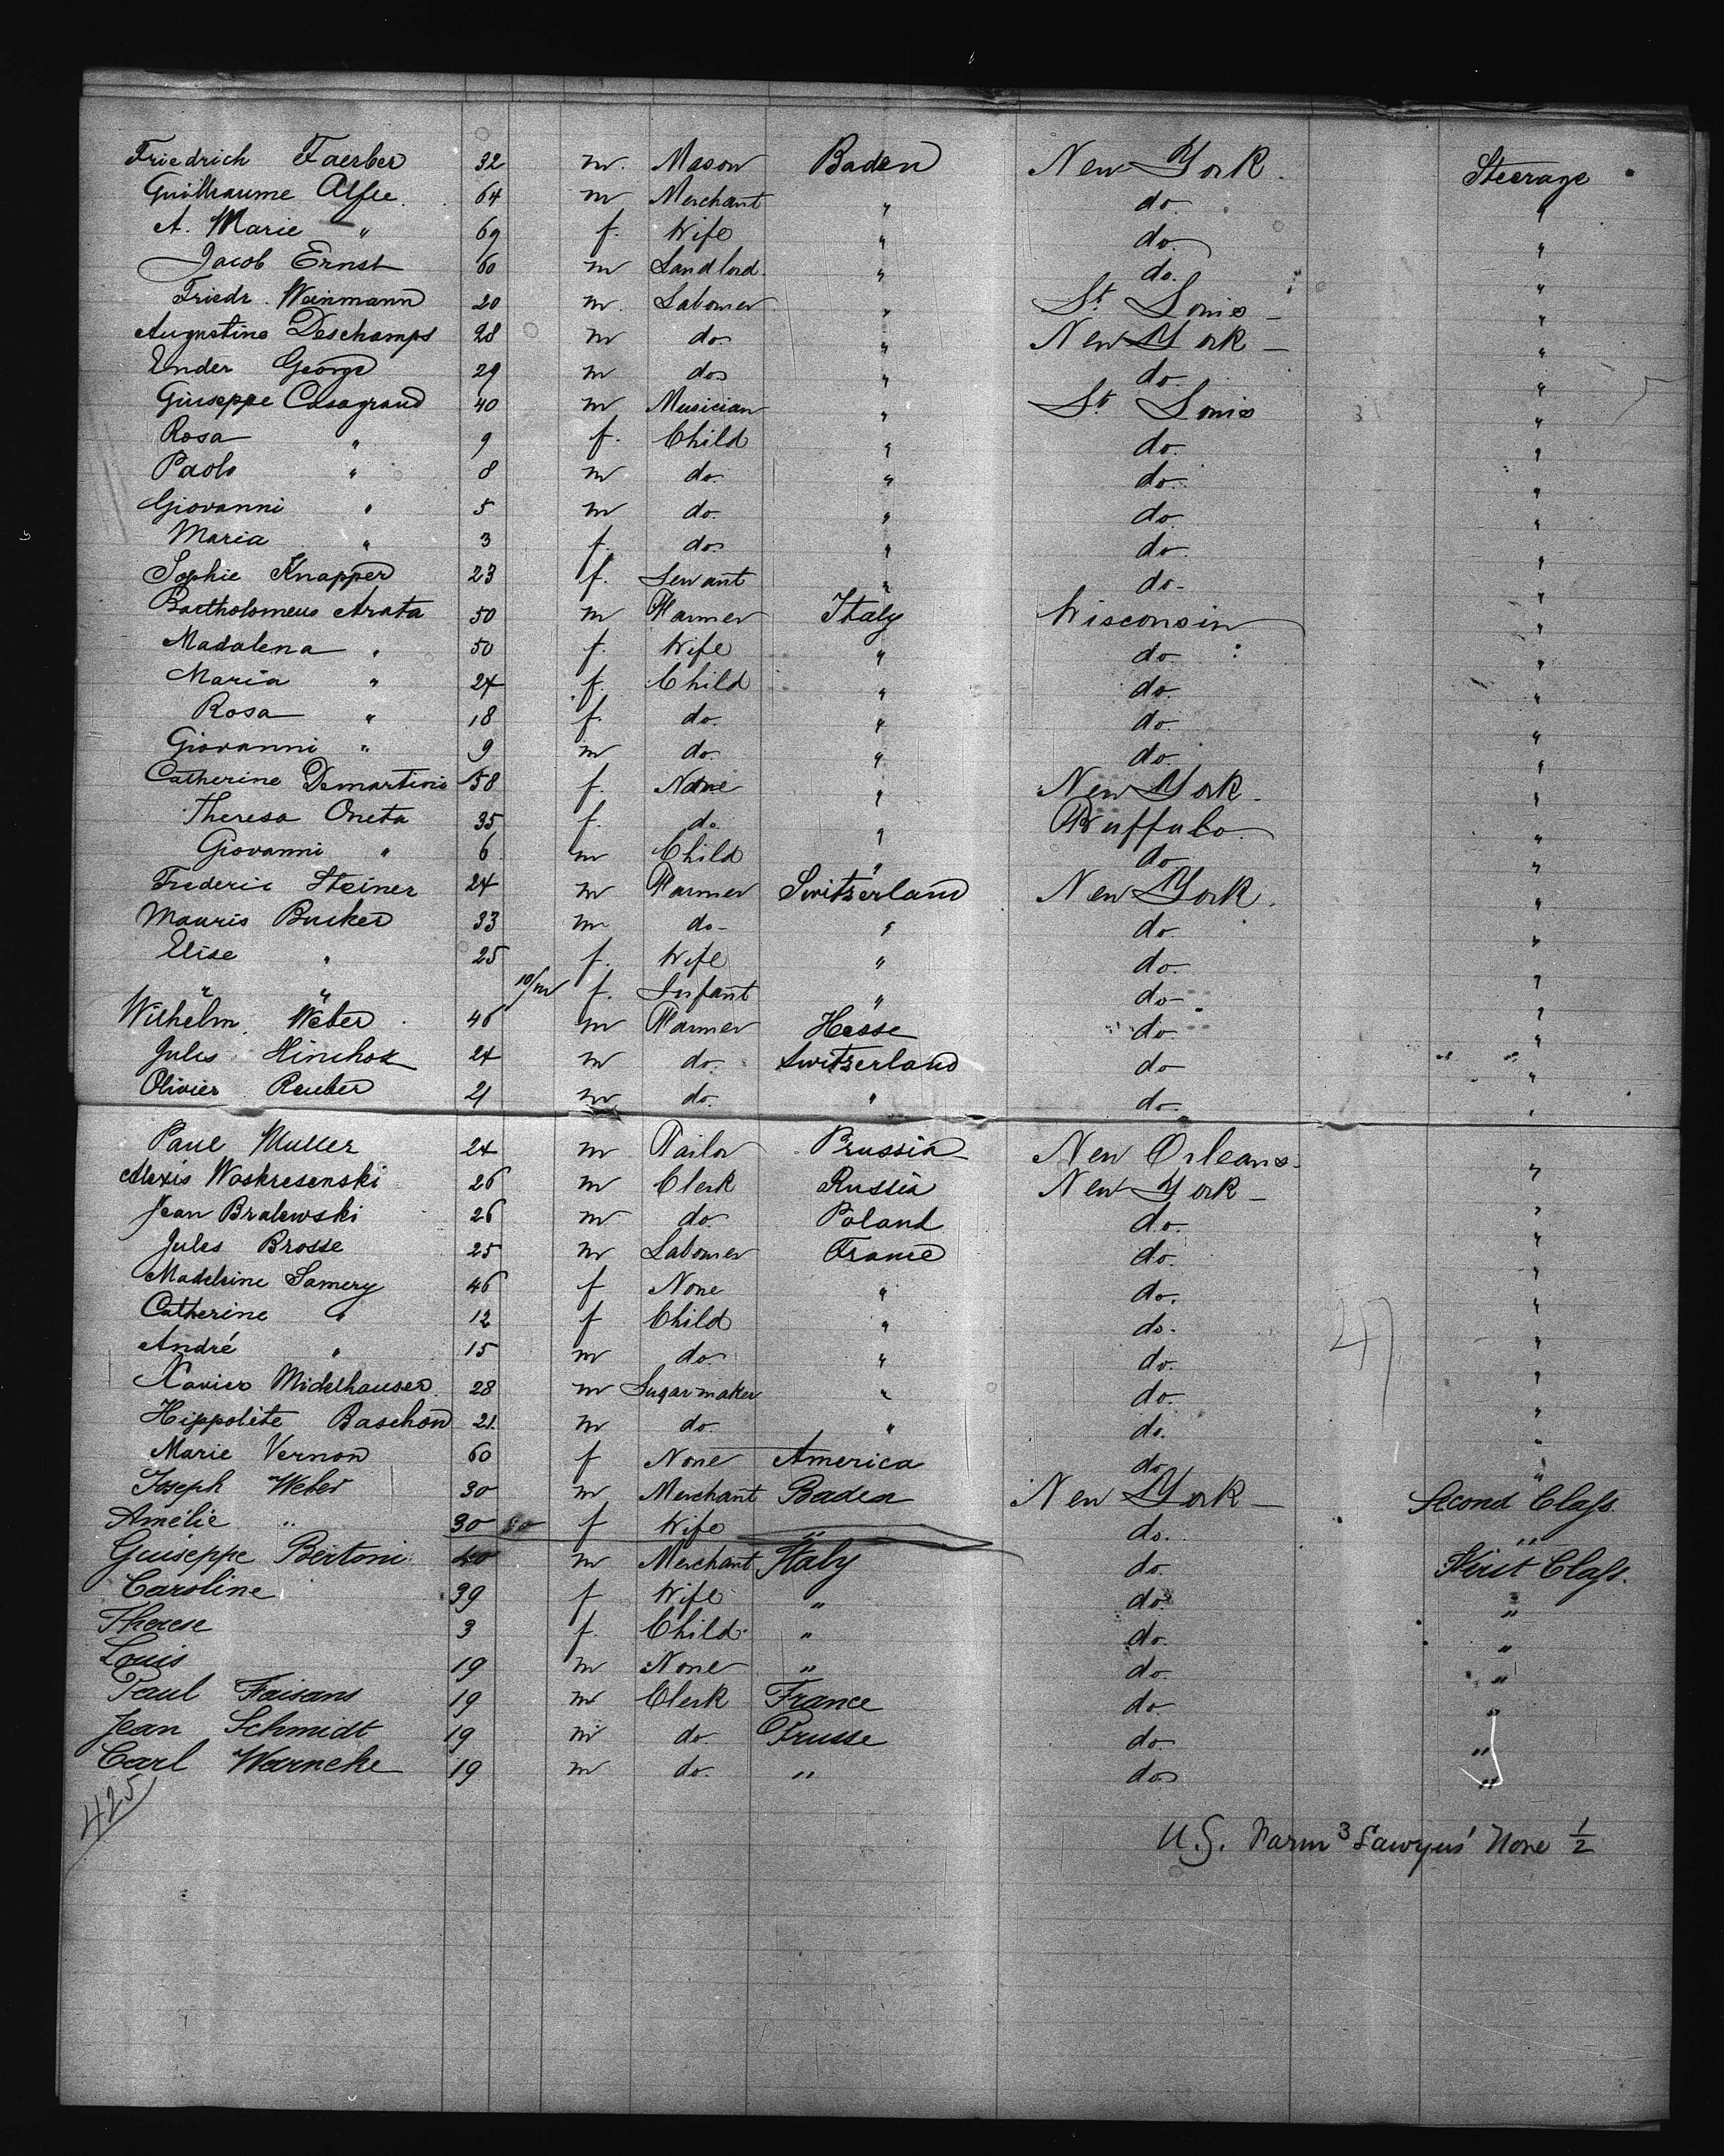 Friedrich Faerber 32 m. Mason Baden New York. Steerage
Guillaume Alfle. 64 m Merchant " do. "
A. Marie " 69 f. Wife " do. "
Jacob Ernst 60 m Landlord " do. "
Friedr. Weinmann 20 m. Labourer " St. Louis - "
Augustine Deschamps 28 m do. " New York - "
Ender George 29 m do. " do. "
Giuseppe Casagrand 40 m Musician " St. Louis "
Rosa " 9 f. Child " do. "
Paolo " 8 m do. " do. "
Giovanni " 5 m do. " do. "
Maria " 3 f. do. " do. "
Sophie Knapper 23 f. Servant " do. "
Bartholomeus Arata 50 m Farmer Italy Wisconsin "
Madalena " 50 f. Wife " do. "
Maria " 24 f. Child " do. "
Rosa " 18 f. do. " do. "
Giovanni " 9 m do. " do. "
Catherine Demartini 58 f. None " New York. "
Theresa Oneta 35 f. do. " Buffalo. "
Giovanni " 6 m Child " do "
Frederic Steiner 24 m Farmer Switzerland New York. "
Mauris Bucker 33 m do- " do. "
Elise " 25 f. Wife " do. "
" " 10/m f. Infant " do- "
Wilhelm Weber 46 m Farmer Hesse do. "
Jules 24 m do. Switzerland do "
Olivier Reuber 21 m do. " do. "
Paul Muller 24 m Tailor Prussia New Orleans. "
Alexis Woskresenski 26 m Clerk Russia New York - "
Jean Bralewski 26 m do Poland do. "
Jules Brosse 25 m Labourer France do. "
Madeleine Samery 46 f None " do. "
Catherine " 12 f Child " do. "
André " 15 m do. " do. "
Xavier Midelhauser. 28 m Sugarmaker " do. "
Hippolite Baschon 21. m do. " do. "
Marie Vernon 60 f None America do. "
Joseph Weber 30 m Merchant Baden New York - Second Class.
Amélie " 30 f Wife " do. "
Guiseppe Bertoni 40 m Merchant Italy do. First Class.
Caroline 39 f Wife " do. "
Therese 3 f. Child " do. "
Louis 19 m None " do. "
Paul Faisans 19 m Clerk France do. "
Jean Schmidt 19 m do Prusse do. "
Carl Warneke 19 m do. " do. "
425
U.S. Farm 3 Lawyers' None 1/2